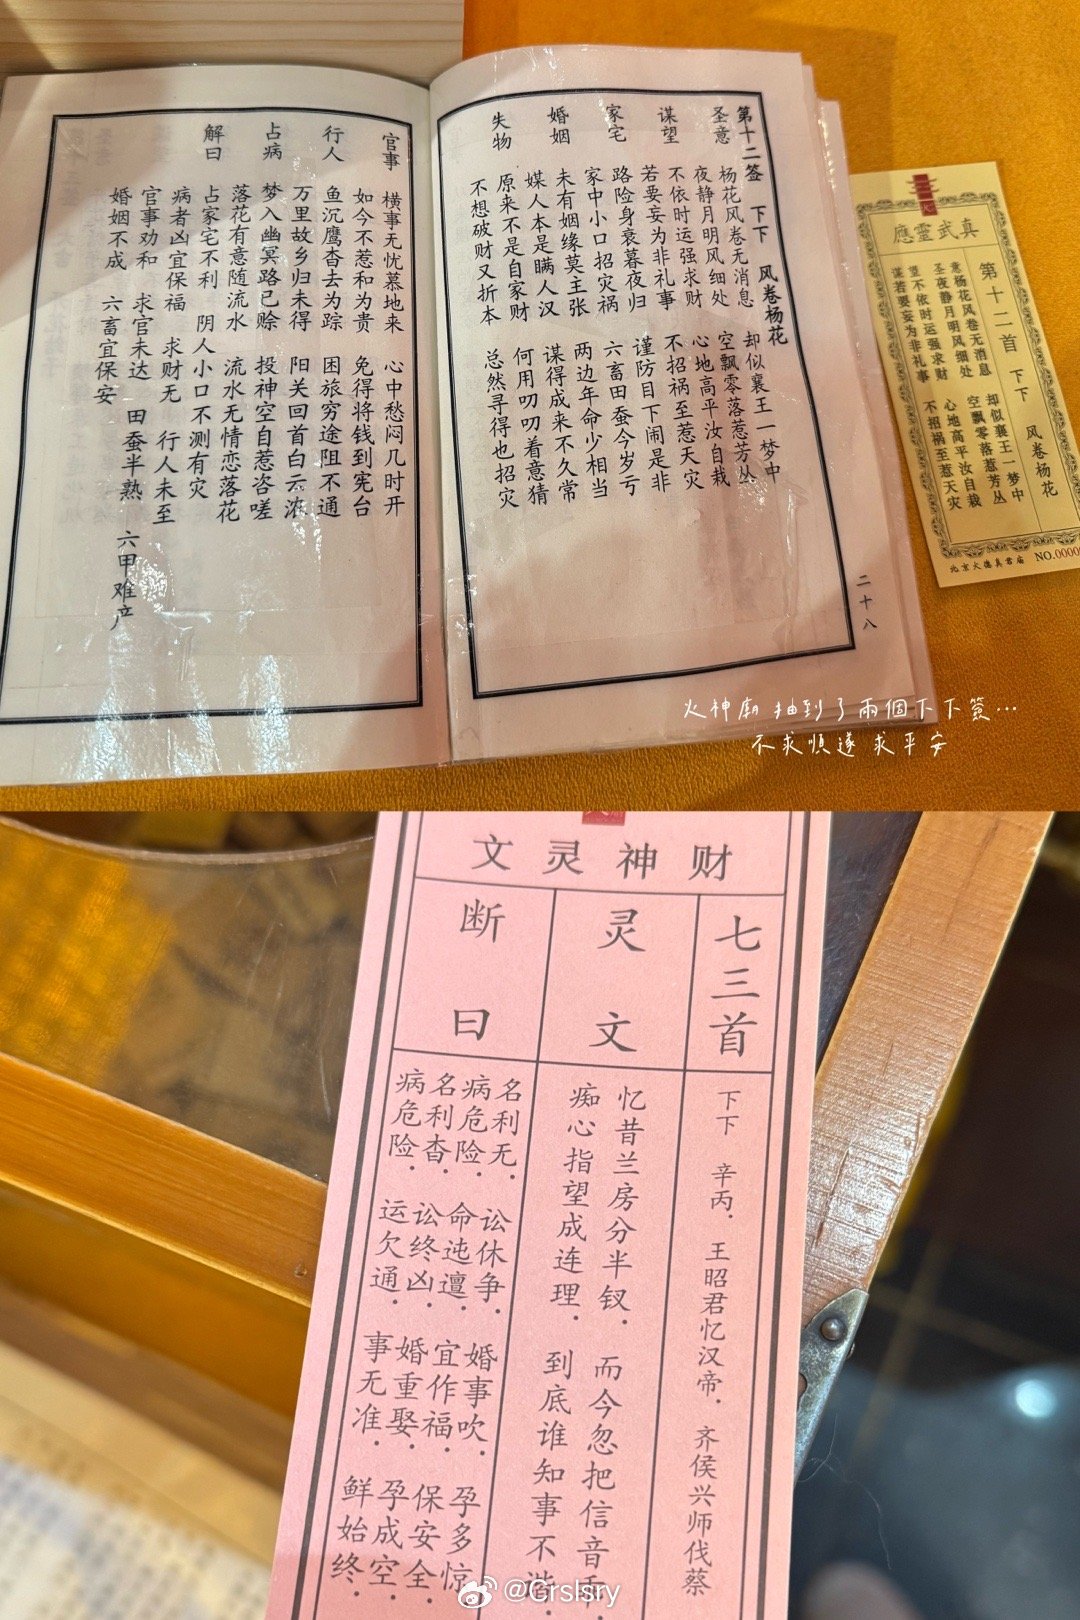 第十二签 下下 风卷杨花
圣意 杨花风卷无消息 却似襄王一梦中
夜静月明风细处 空飘零落惹芳丛
谋望 不依时运强求财 心地高平汝自栽
若要妄为非礼事 不招祸至惹天灾
家宅 路险身衰暮夜归 谨防目下闹是非
家中小口招灾祸 六畜田蚕今岁亏
婚姻 未有姻缘莫王张 两边年命少相当
媒人本是瞒人汉 谋得成来不久常
失物 原来不是自家财 何用叨叨着意猜
不想破财又折本 总然寻得也招灾
二十八
官事 横事无忧慕地来 心中愁闷几时开
如今不惹和为贵 免得将钱到宪台
行人 鱼沉鹰杳去为踪 困旅穷途阻不通
万里故乡归未得 阳关回首白云浓
占病 梦入幽冥路已赊 投神空自惹咨嗟
落花有意随流水 流水无情恋落花
解曰 占家宅不利 阴人小口不测有灾
病者凶宜保福 求财无 行人未至
官事劝和 求官未达 田蚕半熟 六甲难产
婚姻不成 六畜宜保安
應靈武真
第十二首 下下 风卷杨花
意杨花风卷无消息 却似襄王一梦中
圣夜静月明风细处 空飘零落惹芳丛
望不依时运强求财 心地高平汝自栽
谋若要妄为非礼事 不招祸至惹天灾
北京火德真君庙 NO.0000
火神廟 抽到了兩個下下簽…
不求順遂 求平安
文灵神财
七三首
下下 辛丙. 王昭君忆汉帝. 齐侯兴师伐蔡
灵文
忆昔兰房分半钗. 而今忽把信音乖.
痴心指望成连理. 到底谁知事不谐.
断曰
名利无. 讼休争. 婚事吹. 孕多惊
病危险. 命迍邅. 宜作福. 保安全.
名利杳. 讼终凶. 婚重娶. 孕成空.
病危险. 运欠通. 事无准. 鲜始终.
@Crslsry